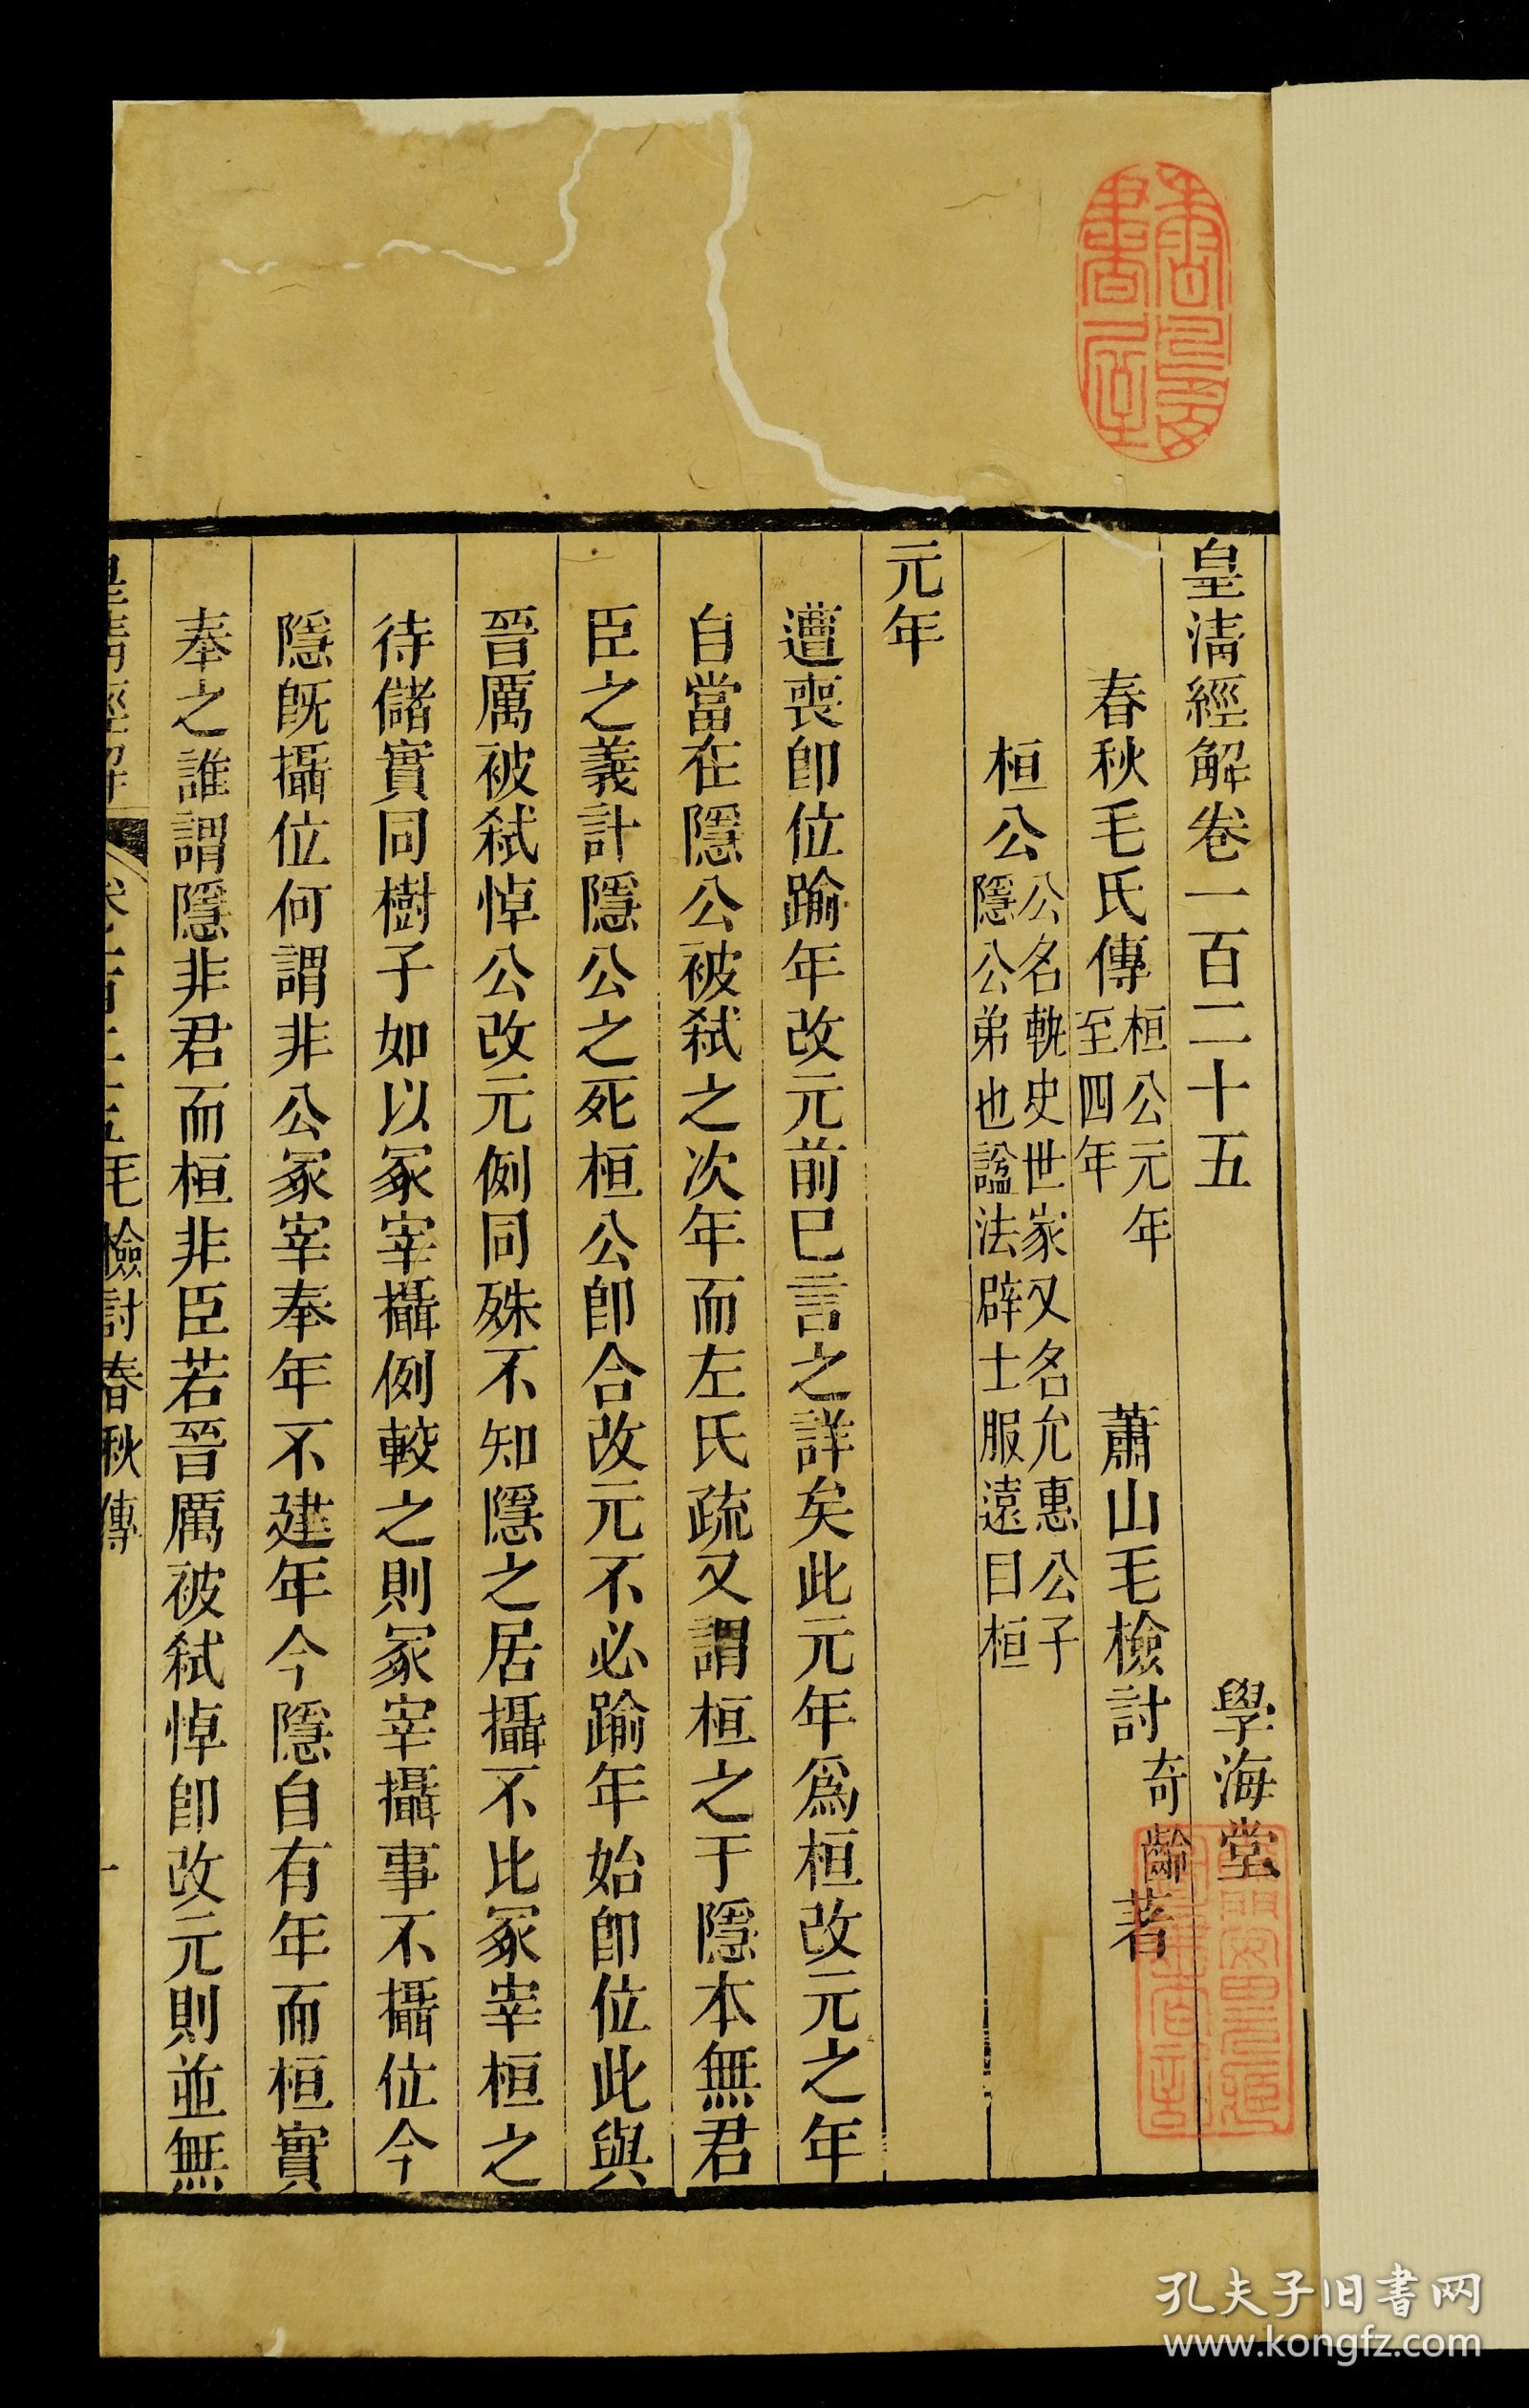 皇清經解卷一百二十五
學海堂
春秋毛氏傳桓公元年至四年
蕭山毛檢討奇齡著
桓公公名軌史世家又名允惠公子
隱公弟也諡法辟士服遠曰桓
元年
遭喪卽位踰年改元前已言之詳矣此元年爲桓改元之年
自當在隱公被弒之次年而左氏疏又謂桓之于隱本無君
臣之義計隱公之死桓公卽合改元不必踰年始卽位此與
晉厲被弒悼公改元例同殊不知隱之居攝不比冢宰桓之
待儲實同樹子如以冢宰攝例較之則冢宰攝事不攝位今
隱旣攝位何謂非公冢宰奉年不建年今隱自有年而桓實
奉之誰謂隱非君而桓非臣若晉厲被弒悼卽改元則並無
皇清經解
卷一百二十五毛檢討春秋傳
一
孔夫子旧书网
www.kongfz.com